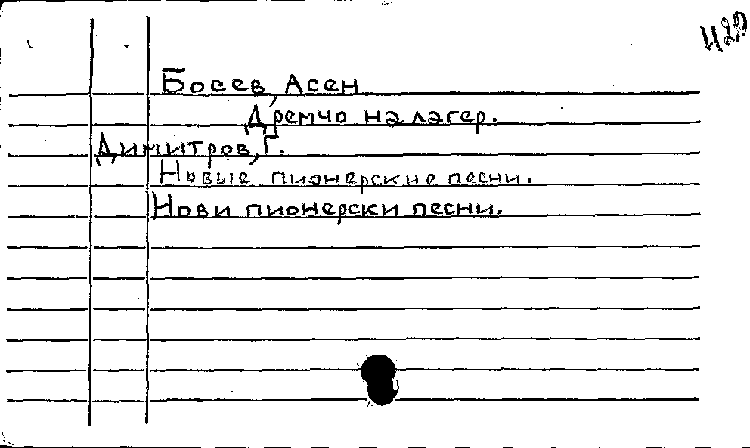 420
Босев, Асен
Дремчо на лагер.
Димитров, Г.
Новые пионерские песни.
Нови пионерски песни.